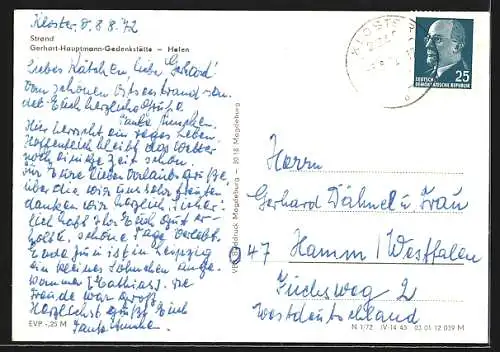 Kloster, d. 8.8.72
Strand
Gerhart-Hauptmann-Gedenkstätte — Hafen
Liebes Kätchen, lieber Gerhard!
Vom schönen Ostseestrand sen-
det Euch herzliche Grüße
Tante
Hier herrscht ein reges Leben.
Hoffentlich bleibt das Wetter
noch einige Zeit schön.
Für Eure lieben Urlaubsgrüße
über die wir uns sehr freuten
danken wir herzlich. Sicher-
lich habt Ihr Euch gut er-
holt u. schöne Tage verlebt.
Ende Juni ist in Leipzig
ein kleines Söhnchen ange-
kommen (Mathias). Die
Freude war groß.
Herzlichst grüßt Euch
Tante
EVP -,25 M
VEB Bild und Druck Magdeburg — 3018 Magdeburg
KLOSTER
DEUTSCHE
DEMOKRATISCHE REPUBLIK
25
Herrn
Gerhard Dähnel u. Frau
47 Hamm / Westfalen
Fuchsweg 2
Westdeutschland
N 1/72 IV-14-45 03 01 12 039 M